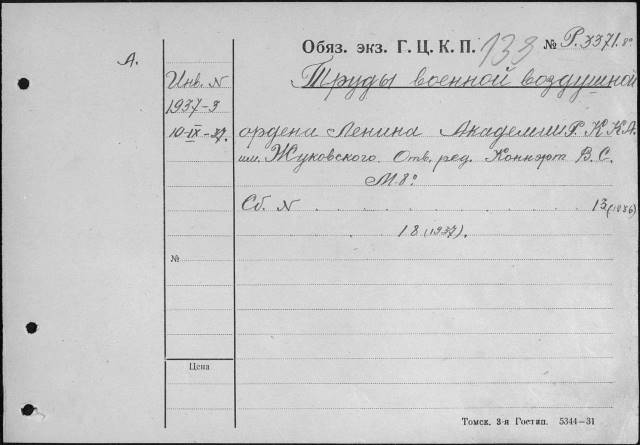 А.
Обяз. экз. Г. Ц. К. П. 133 № Р.3371.8°
Инв. N
Труды военной воздушной
1937-3
10-IX-37.
ордена Ленина Академии Р.К.К.А.
им. Жуковского. Отв. ред. Коннэрт В. С.
М.8°
Сб. N . . . . . . . 13 (1936)
18 (1937).
№
Цена
Томск, 3-я Гостип. 5344—31